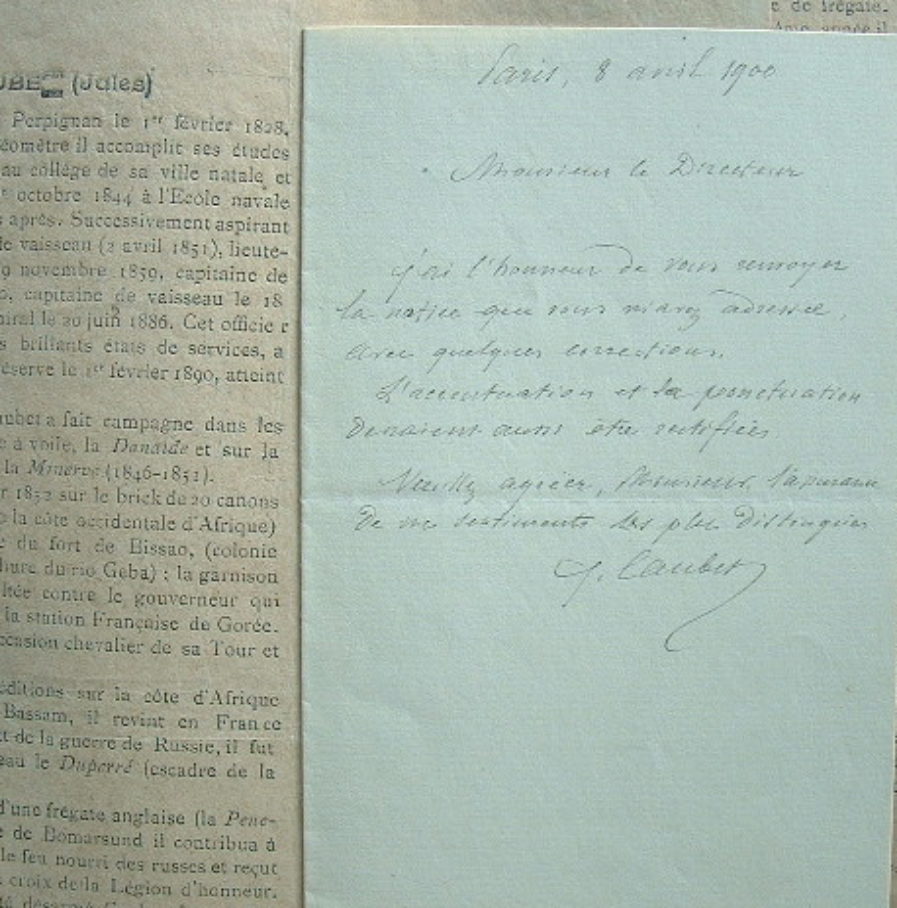 e de frégate.
(Jules)
Perpignan le 1er février 1828.
éomètre il accomplit ses études
au collège de sa ville natale et
octobre 1844 à l'École navale
s après. Successivement aspirant
de vaisseau (2 avril 1851), lieute-
9 novembre 1859, capitaine de
capitaine de vaisseau le 18
miral le 20 juin 1886. Cet officie r
s brillants états de services, a
réserve le 1er février 1890, atteint
aubet a fait campagne dans les
à voile, la Danaïde et sur la
la Minerve (1846-1851).
r 1852 sur le brick de 20 canons
la côte occidentale d'Afrique)
e du fort de Bissao, (colonie
du rio Geba) : la garnison
ltée contre le gouverneur qui
la station Française de Gorée.
ccasion chevalier de sa Tour et
éditions sur la côte d'Afrique
Bassam, il revint en France
t de la guerre de Russie, il fut
eau le Duperré (escadre de la
d'une frégate anglaise (la Pene-
e de Bomarsund il contribua à
le feu nourri des russes et reçut
croix de la Légion d'honneur.
Paris, 8 avril 1900
Monsieur le Directeur
j'ai l'honneur de vous renvoyer
la notice que vous m'avez adressée,
avec quelques corrections.
L'accentuation et la ponctuation
devraient aussi être rectifiées
Veuillez agréer, Monsieur, l'assurance
de mes sentiments les plus distingués
J. Caubet